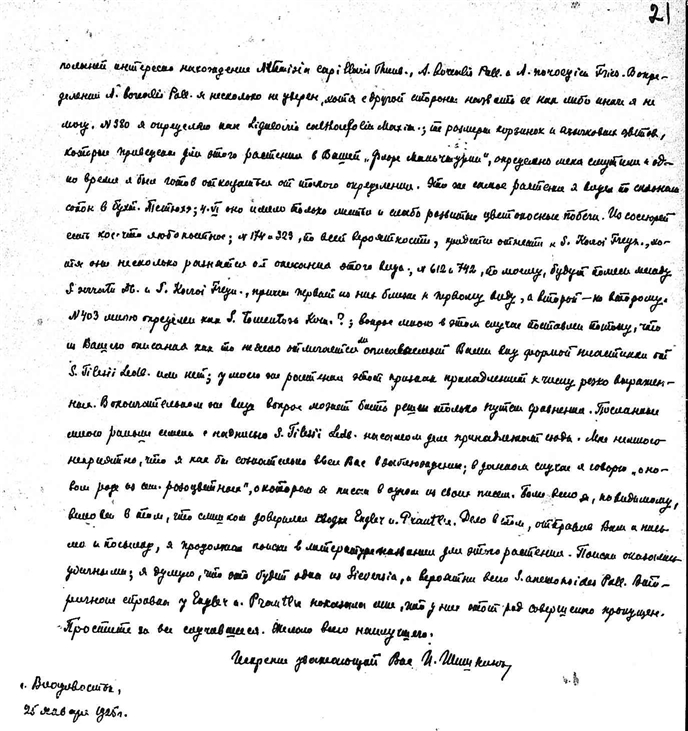 21
полыней интересно нахождение Artemisia capillaris Thunb., A. borealis Pall. и A. norvegica Fries. В опре-
делении A. borealis Pall. я несколько не уверен, хотя с другой стороны назвать ее как либо иначе я не
могу. N 380 я определяю как Ligularia calthaefolia Maxim.; те размеры корзинок и язычковых цветов,
которые приведены для этого растения в Вашей „Флоре Маньчжурии", определенно меня смутили и од-
но время я был готов отказаться от этого определения. Это же самое растение я видел по склонам
сопок в бухт. Тетюхэ; 4.VI оно имело только листы и слабо развитые цветоносные побеги. Из соссюрей
есть кое-что любопытное; N 174 и 329, по всей вероятности, придется отнести к S. Koroi Freyn., хо-
тя они несколько разнятся от описания этого вида. N 612 и 742, по моему, будут помеси между
S. serrata DC. и S. Koroi Freyn., причем первый из них ближе к первому виду, а второй — ко второму.
N 403 мною определен как S. tomentosa Kom. ?; вопрос мною в этом случае поставлен потому, что
из Вашего описания как то неясно отличается ли описываемый Вами вид формой листа от
S. Tilesii Ledb. или нет; у моего же растения этот признак принадлежит к числу резко выражен-
ных. В окончательном же виде вопрос может быть решен только путем сравнения. Посланные
мною раньше семена с надписью S. Tilesii Ledb. на самом деле принадлежат сюда. Мне немного
неприятно, что я как бы сознательно ввел Вас в заблуждение; в данном случае я говорю „о но-
вом роде из сем. розоцветных", о котором я писал в одном из своих писем. Было всего я, по видимому,
виноват в том, что слишком доверился сводке Engler u. Prantl'я. Дело в том, отправив Вам и пись-
мо и посылку, я продолжал поиски в литературе названия для этого растения. Поиски оказались
удачными; я думаю, что это будет одна из Sieversia, а вероятнее всего S. anemonoides Pall. Вто-
ричные справки у Engler u. Prantl'я показали мне, что у них этот род совершенно пропущен.
Простите за все случившееся. Желаю всего наилучшего.
Искренне уважающий Вас И. Шишкин
г. Владивосток,
25 января 1926 г.